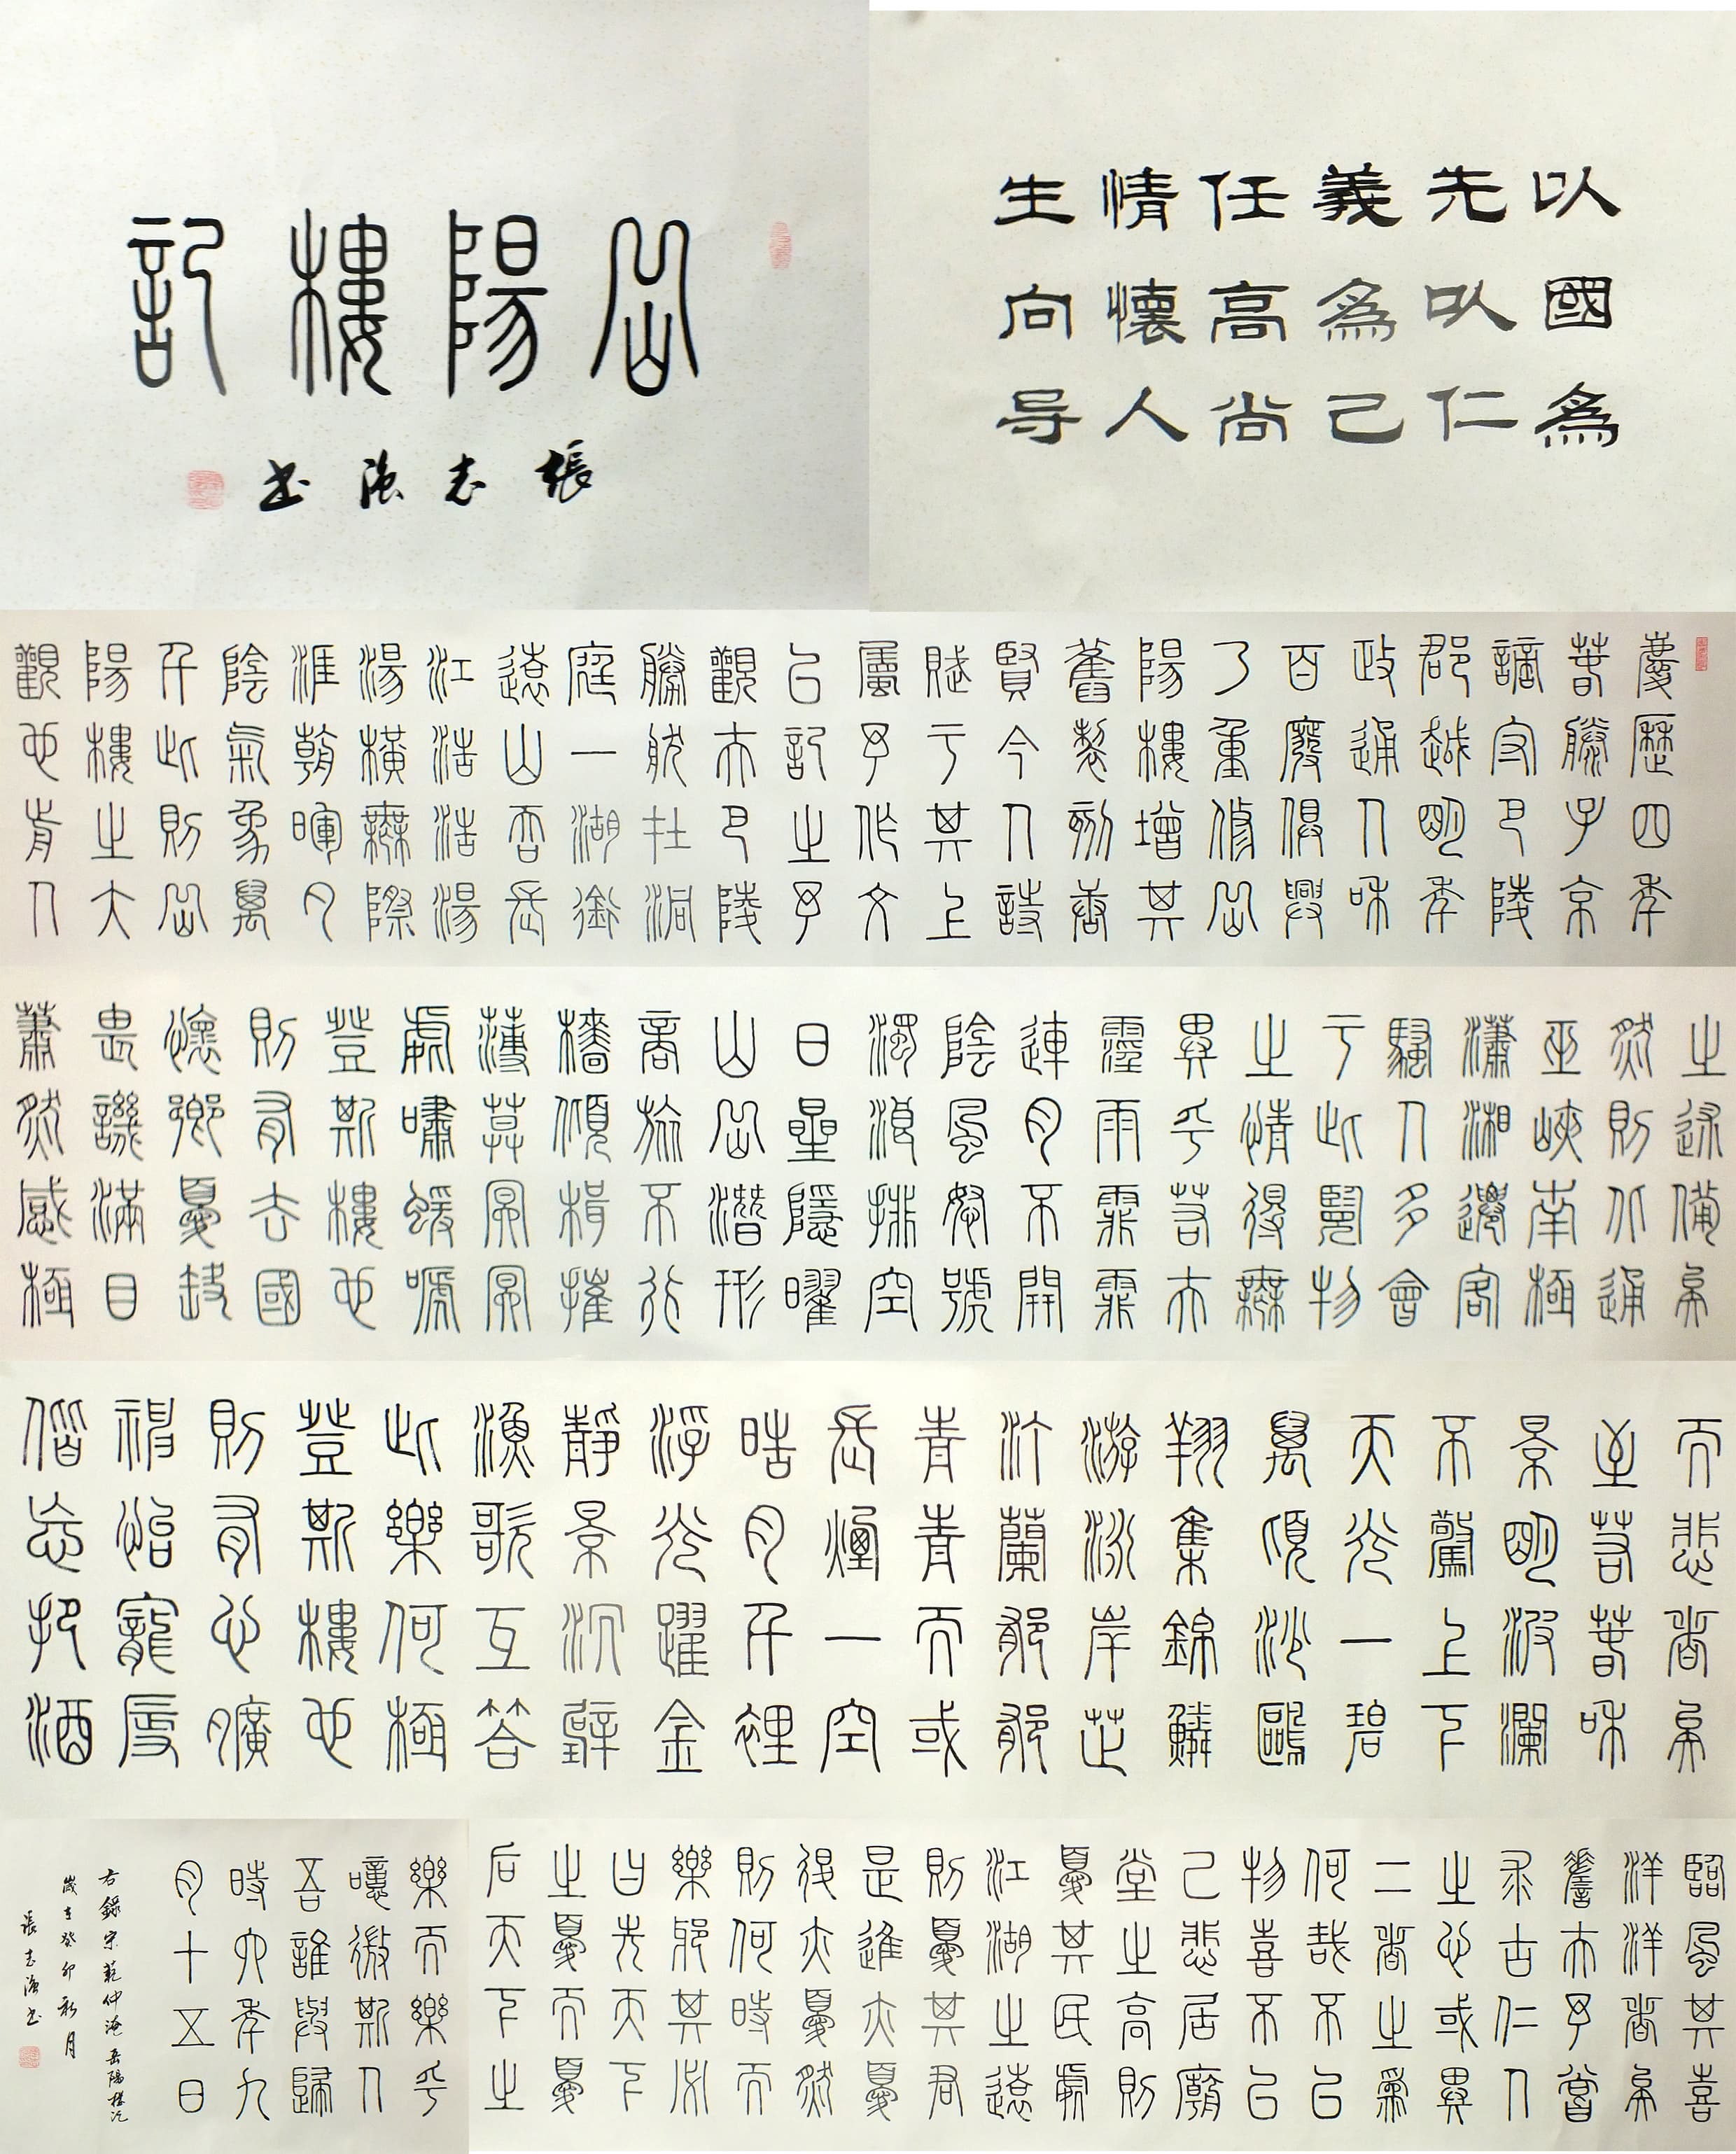 岳陽樓記
張志強书
以國為
先以仁
義為己
任高尚
情懷人
生向导
慶歷四年
春滕子京
謫守巴陵
郡越明年
政通人和
百廢俱興
乃重修岳
陽樓增其
舊製刻唐
賢今人詩
賦于其上
屬予作文
以記之予
觀夫巴陵
勝狀在洞
庭一湖銜
遠山吞長
江浩浩湯
湯橫無際
涯朝暉夕
陰氣象萬
千此則岳
陽樓之大
觀也前人
之述備矣
然則北通
巫峽南極
瀟湘遷客
騷人多會
于此覽物
之情得無
異乎若夫
霪雨霏霏
連月不開
陰風怒號
濁浪排空
日星隱曜
山岳潛形
商旅不行
檣傾楫摧
薄暮冥冥
虎嘯猿啼
登斯樓也
則有去國
懷鄉憂讒
畏譏滿目
蕭然感極
而悲者矣
至若春和
景明波瀾
不驚上下
天光一碧
萬頃沙鷗
翔集錦鱗
游泳岸芷
汀蘭郁郁
青青而或
長煙一空
皓月千里
浮光躍金
靜景沉璧
漁歌互答
此樂何極
登斯樓也
則有心曠
神怡寵辱
偕忘把酒
臨風其喜
洋洋者矣
嗟夫予嘗
求古仁人
之心或異
二者之為
何哉不以
物喜不以
己悲居廟
堂之高則
憂其民處
江湖之遠
則憂其君
是進亦憂
退亦憂然
則何時而
樂耶其必
曰先天下
之憂而憂
后天下之
樂而樂乎
噫微斯人
吾誰與歸
時六年九
月十五日
右錄宋範仲淹岳陽樓记
歲在癸卯秋月
張志強书